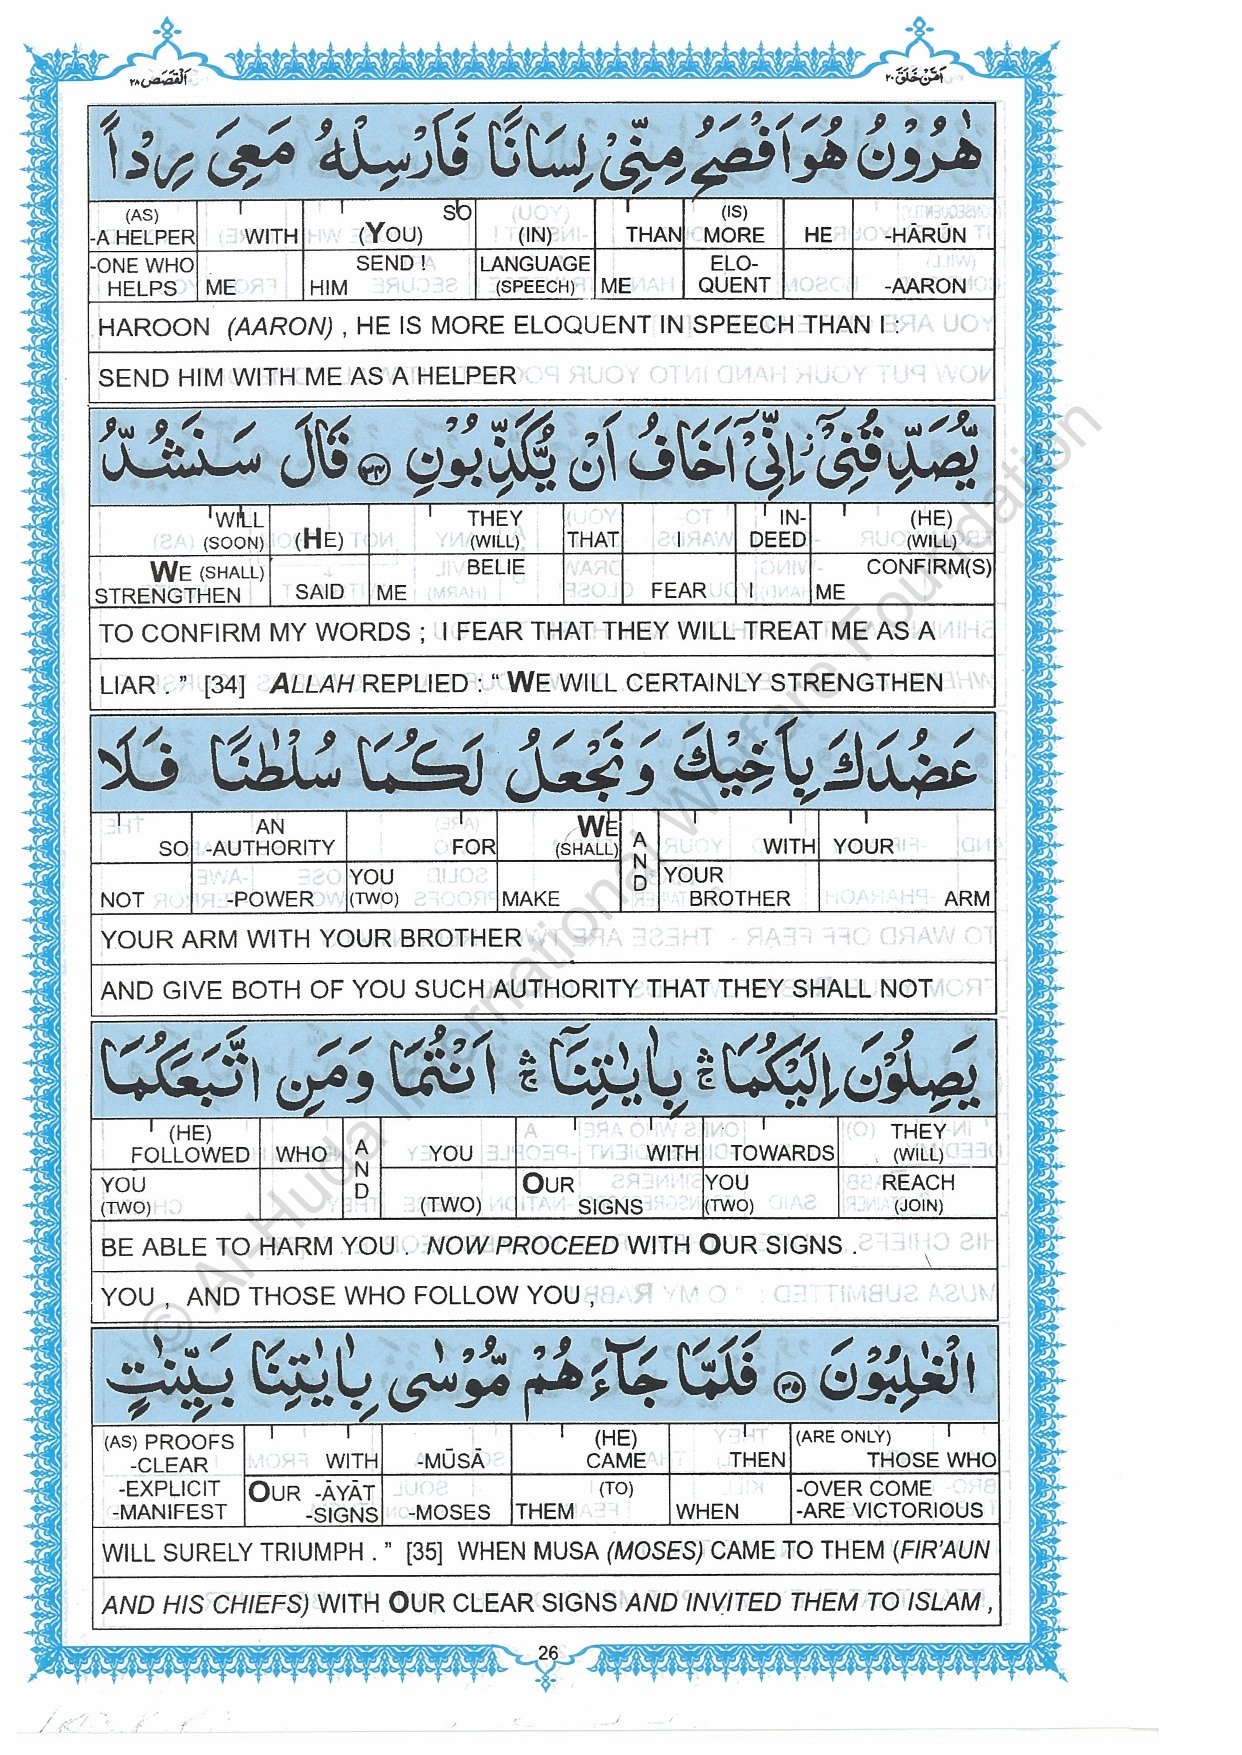 اَلْقَصَص ٢٨
اَمَّنْ خَلَقَ ٢٠
هٰرُوْنُ هُوَ اَفْصَحُ مِنِّىْ لِسَانًا فَاَرْسِلْهُ مَعِىَ رِدْاً
(AS) -A HELPER WITH SO (YOU) (IN) THAN (IS) MORE HE -HĀRŪN
-ONE WHO HELPS ME HIM SEND ! LANGUAGE (SPEECH) ME ELO-QUENT -AARON
HAROON (AARON) , HE IS MORE ELOQUENT IN SPEECH THAN I :
SEND HIM WITH ME AS A HELPER
يُّصَدِّقُنِىْٓ اِنِّىْٓ اَخَافُ اَنْ يُّكَذِّبُوْنِ ٣٤ قَالَ سَنَشُدُّ
WILL (SOON) (HE) THEY (WILL) THAT I IN-DEED (HE) (WILL)
WE (SHALL) STRENGTHEN SAID ME BELIE FEAR I ME CONFIRM(S)
TO CONFIRM MY WORDS ; I FEAR THAT THEY WILL TREAT ME AS A
LIAR . ” [34] ALLAH REPLIED : “ WE WILL CERTAINLY STRENGTHEN
عَضُدَكَ بِاَخِيْكَ وَنَجْعَلُ لَكُمَا سُلْطٰنًا فَلَا
SO AN -AUTHORITY FOR WE (SHALL) AND WITH YOUR
NOT -POWER YOU (TWO) MAKE YOUR BROTHER ARM
YOUR ARM WITH YOUR BROTHER
AND GIVE BOTH OF YOU SUCH AUTHORITY THAT THEY SHALL NOT
يَصِلُوْنَ اِلَيْكُمَا ۛۚ بِاٰيٰتِنَآ ۛۚ اَنْتُمَا وَمَنِ اتَّبَعَكُمَا
(HE) FOLLOWED WHO AND YOU WITH TOWARDS THEY (WILL)
YOU (TWO) (TWO) OUR SIGNS YOU (TWO) REACH (JOIN)
BE ABLE TO HARM YOU . NOW PROCEED WITH OUR SIGNS .
YOU , AND THOSE WHO FOLLOW YOU ,
الْغٰلِبُوْنَ ٣٥ فَلَمَّا جَآءَهُمْ مُّوْسٰى بِاٰيٰتِنَا بَيِّنٰتٍ
(AS) PROOFS -CLEAR WITH -MŪSĀ (HE) CAME THEN (ARE ONLY) THOSE WHO
-EXPLICIT -MANIFEST OUR -ĀYĀT -SIGNS -MOSES THEM (TO) WHEN -OVER COME -ARE VICTORIOUS
WILL SURELY TRIUMPH . ” [35] WHEN MUSA (MOSES) CAME TO THEM (FIR'AUN
AND HIS CHIEFS) WITH OUR CLEAR SIGNS AND INVITED THEM TO ISLAM ,
26
© Al-Huda International Welfare Foundation